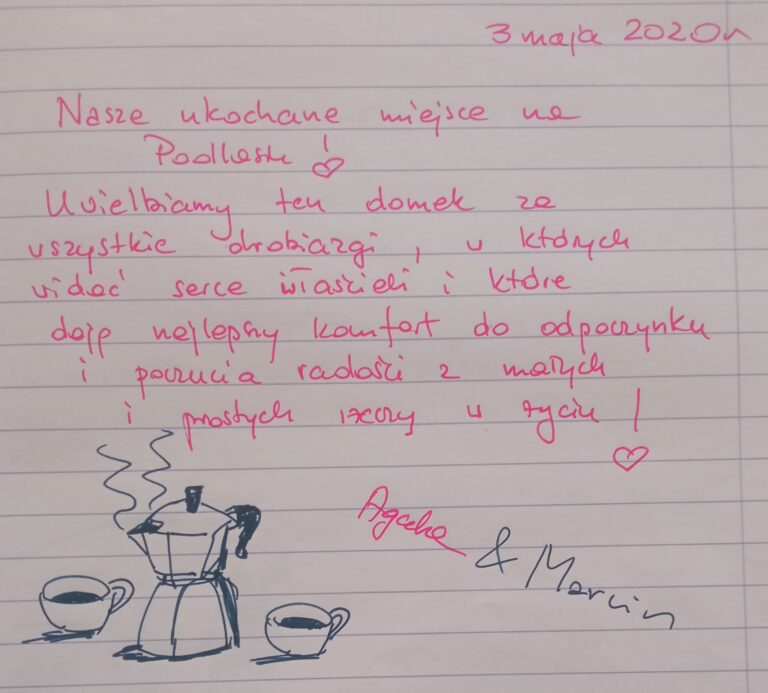 3 maja 2020r
Nasze ukochane miejsce na
Podlasiu !
Uwielbiamy ten domek za
wszystkie drobiazgi, w których
widać serce właścieli i które
dają najlepszy komfort do odpoczynku
i poczucia radości z małych
i prostych rzeczy w życiu !
& Marcin